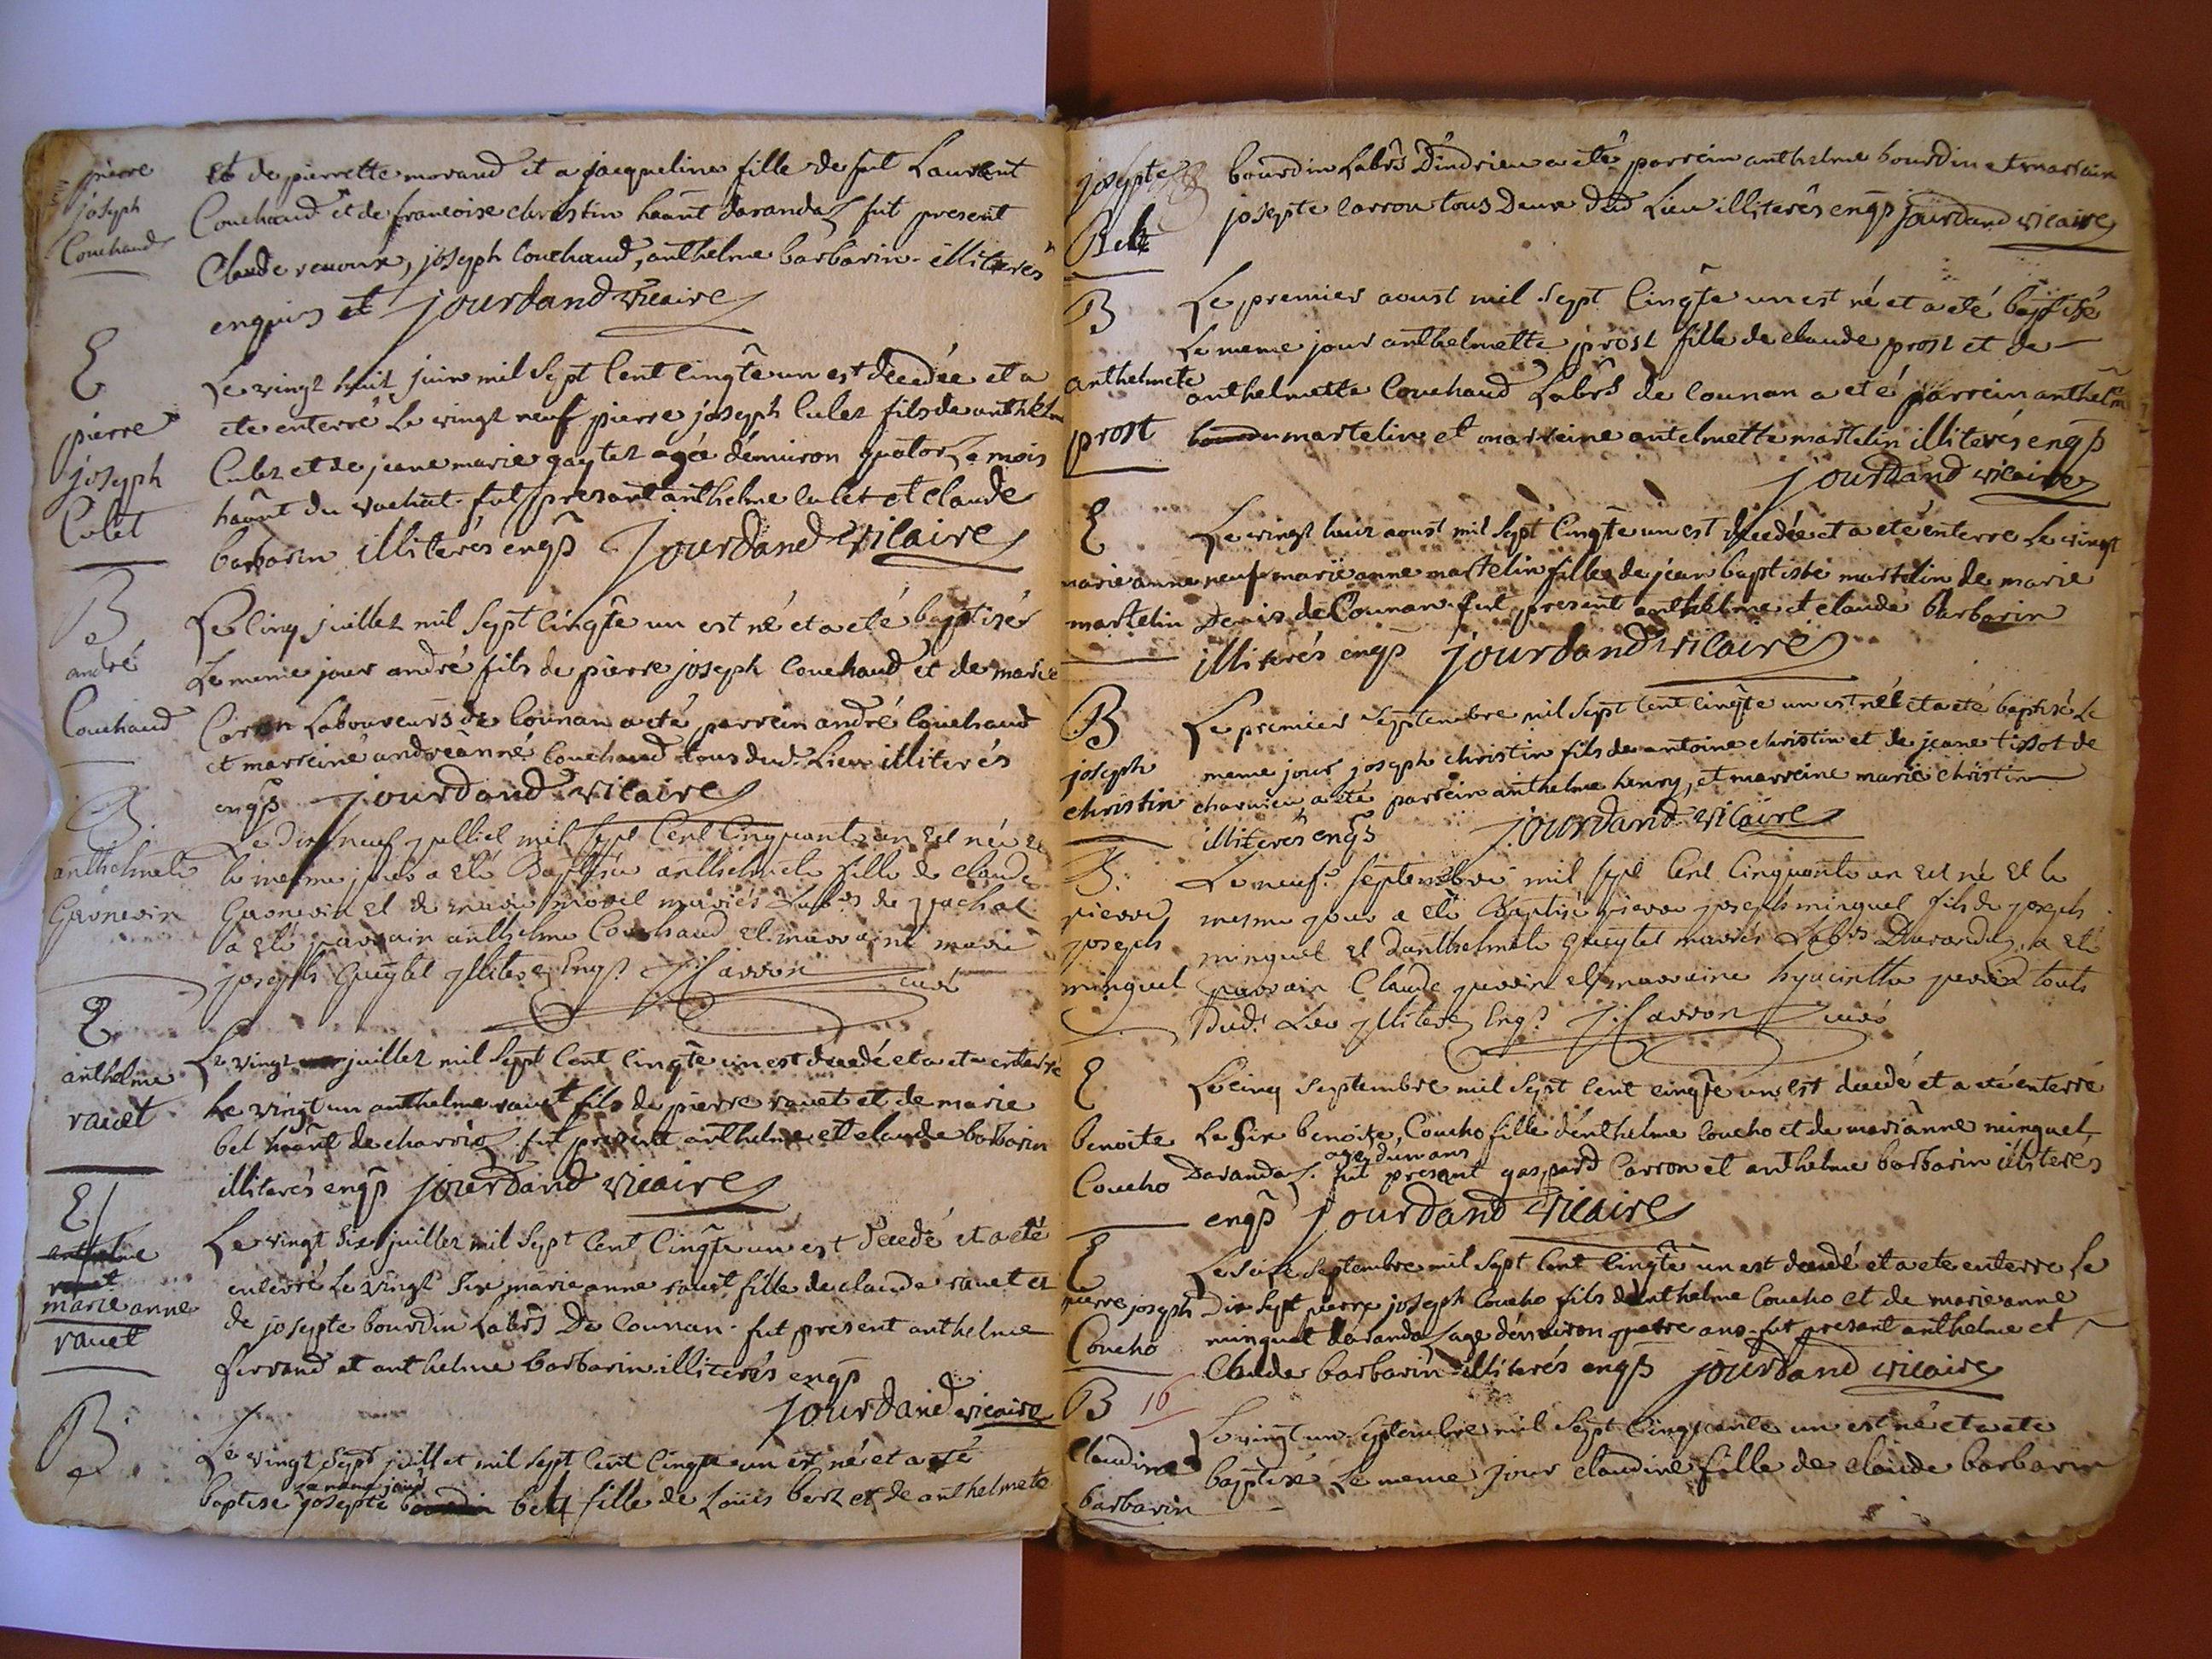 pierre
joseph
Couchaud
et de pierrette morand et a jacqueline fille de fut Laurent
Couchaud et de francoise christin haûnt darandaz fut present
Claude renoux, joseph Couchaud, anthelme barbarin illiterés
enquis et jourdand vicaire
E
pierre
joseph
Culet
Le vingt huit juin mil sept Cent Cinqte un est decedée et a
ete enterré Le vingt neuf pierre joseph Culet fils de anthelm
Culet et de jeane marie gaytet agée démuiron quatorze mois
haûnt du vachat fut present anthelme culet et claude
barbarin illiterés enqs Jourdand vicaire
B
andré
Couchaud
Le Cinq juillet mil sept Cinqte un est né et a eté baptisé
Le meme jour andré fils de pierre joseph Couchaud et de marie
Caron Laboureurs de Counan a eté parrein andré Couchaud
et marreine andreânne Couchaud tous dud. Lieu illiterés
enqs jourdand vicaire
B.
anthelmete
Le Dix neuf juilliet mil sept Cent Cinquant un est née et
le mesme jour a eté Baptisée anthelmete fille de claude
et de marie morel mariés Labrs de vachat
a eté parrain anthelme Couchaud et marraine marie
joseph Guaytet illiteré Enqs J: Carron curé
E
anthelme
ravet
Le vingt juillet mil sept Cent Cinqte un est decedé et a ete enterré
Le vingt un anthelme ravet fils de pierre ravet et de marie
bel haûnt de charvioz fut present anthelme et claude barbarin
illiterés enqs jourdand vicaire
E
anthelme
ravet
marie anne
ravet
Le vingt six juillet mil sept Cent Cinqte un est decedé et a eté
enterré Le vingt six marie anne ravet fille de claude ravet et
de josepte bourdin Labrs De Counan fut present anthelme
ferrand et anthelme barbarin illiterés enqs
jourdand vicaire
B
Le vingt sept juillet mil sept Cent Cinqte un est né et a eté
Le meme jour
baptise josepte betz fille de Louis betz et de anthelmete
josepte
Betz
bourdin Labrs Dindrieu a eté parrein anthelme bourdin et marrain
josepte Carron tous Deux dud Lieu illiterés enqs jourdand vicaire
B
anthelmete
prost
Le premier aoust mil sept Cinqte un est né et a eté baptisé
Le meme jour anthelmette prost fille de claude prost et de
anthelmette Couchaud Labrs de Counan a eté parrein anthelm
martelin et marreine antelmette martelin illiterés enqs
jourdand vicaire
E
marie anne
martelin
Le vingt huit aoust mil sept Cinqte un est decedée et a eté enterre Le vingt
neuf marie anne martelin fille de jean baptiste martelin de marie
Denis de Counan fut present anthelme et claude barbarin
illiterés enqs jourdand vicaire
B
joseph
christin
Le premier septembre mil sept Cent Cinqte un est né et a eté baptisé Le
meme jour joseph christin fils de antoine christin et de jeane tissot de
charvieu a eté parrein anthelme henry, et marreine marie christin
illiterés enqs jourdand vicaire
B.
pierre
joseph
minguet
Le neuf. septembre mil sept Cent Cinquante un est né et le
mesme jour a eté Baptisé pierre joseph minguet fils de joseph
minguet et Danthelmete guaytet mariés Labrs Darandaz, a eté
parrain Claude perrin et marraine hyacinthe perrin touts
Dud. Lieu illiteré Enqs J: Carron curé
E
benoite
Coucho
Le cinq septembre mil sept Cent Cinqte un est decedé et a eté enterré
Le six benoite, Coucho fille d'enthelme Coucho et de mariânne minguet,
agé dun ans
Darandaz. fut present gaspard Carron et anthelme barbarin illiteres
enqs jourdand vicaire
E
pierre joseph
Coucho
Le seize septembre mil sept Cent Cinqte un est decedé et a ete enterre Le
Dix sept pierre joseph Coucho fils d'enthelme Coucho et de marie anne
minguet darandaz age denviron quatre ans fut present anthelme et
Claude barbarin illiterés enqs jourdand vicaire
B 16
Claudine
barbarin
Le vingt un septembre mil sept Cinquante un est né et a ete
baptisé Le meme jour claudine fille de claude barbarin